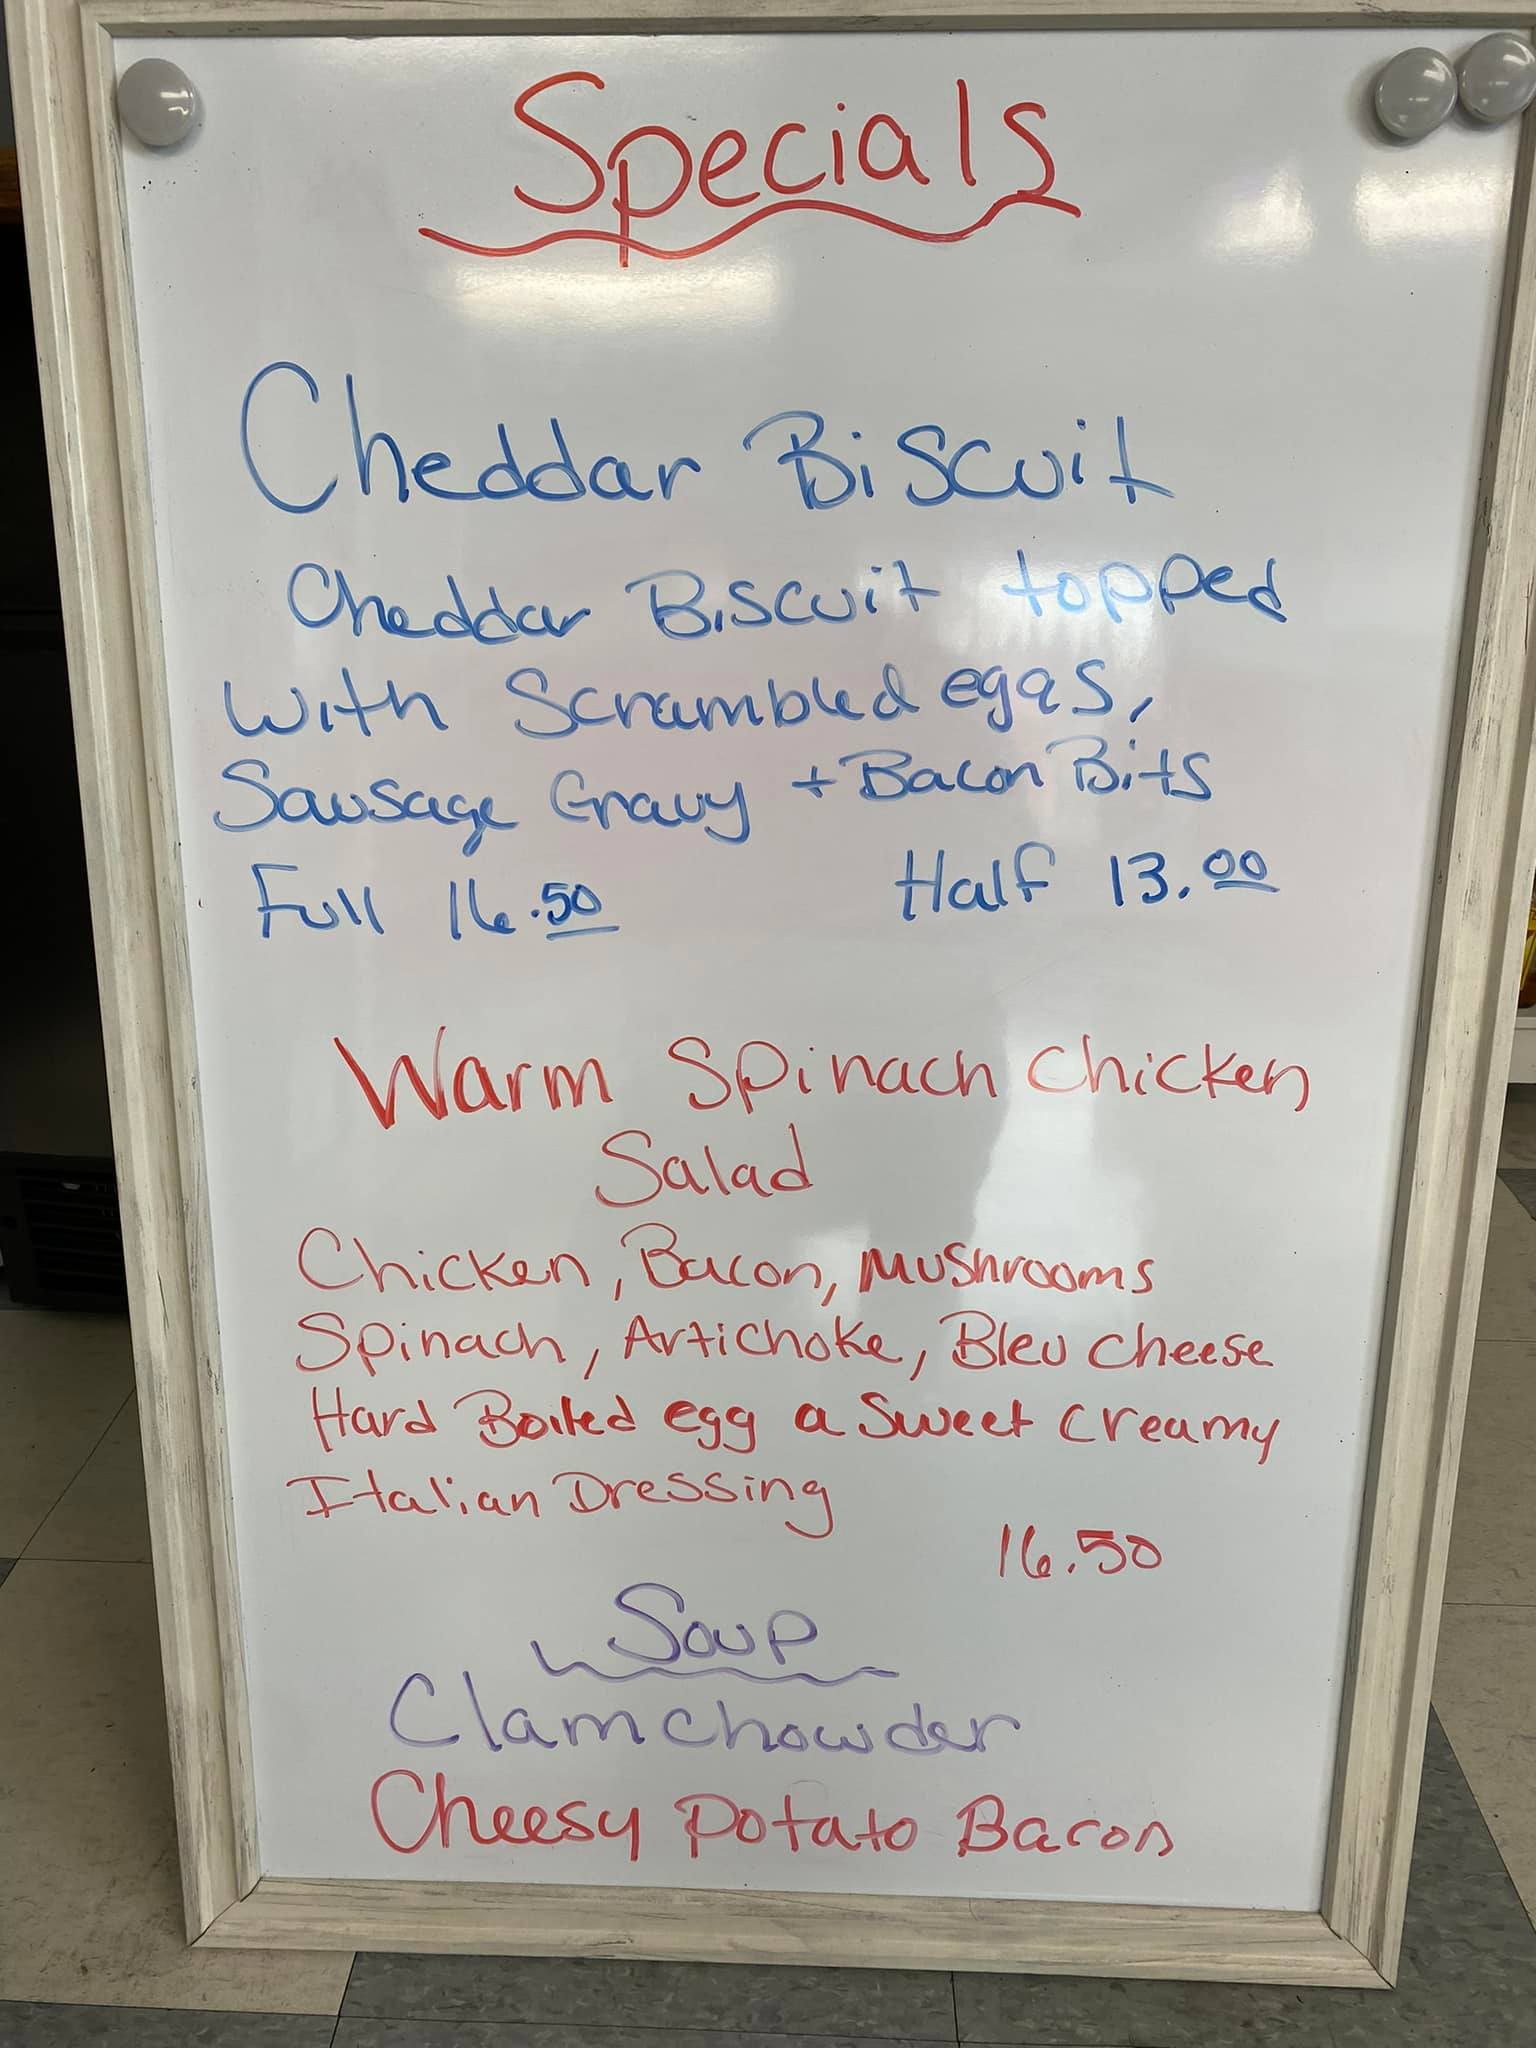 Specials
Cheddar Biscuit
Cheddar Biscuit topped
with Scrambled eggs,
Sausage Gravy + Bacon Bits
Full 16.50 Half 13.00
Warm Spinach Chicken
Salad
Chicken, Bacon, Mushrooms
Spinach, Artichoke, Bleu cheese
Hard Boiled egg a Sweet Creamy
Italian Dressing
16.50
Soup
Clam chowder
Cheesy Potato Bacon